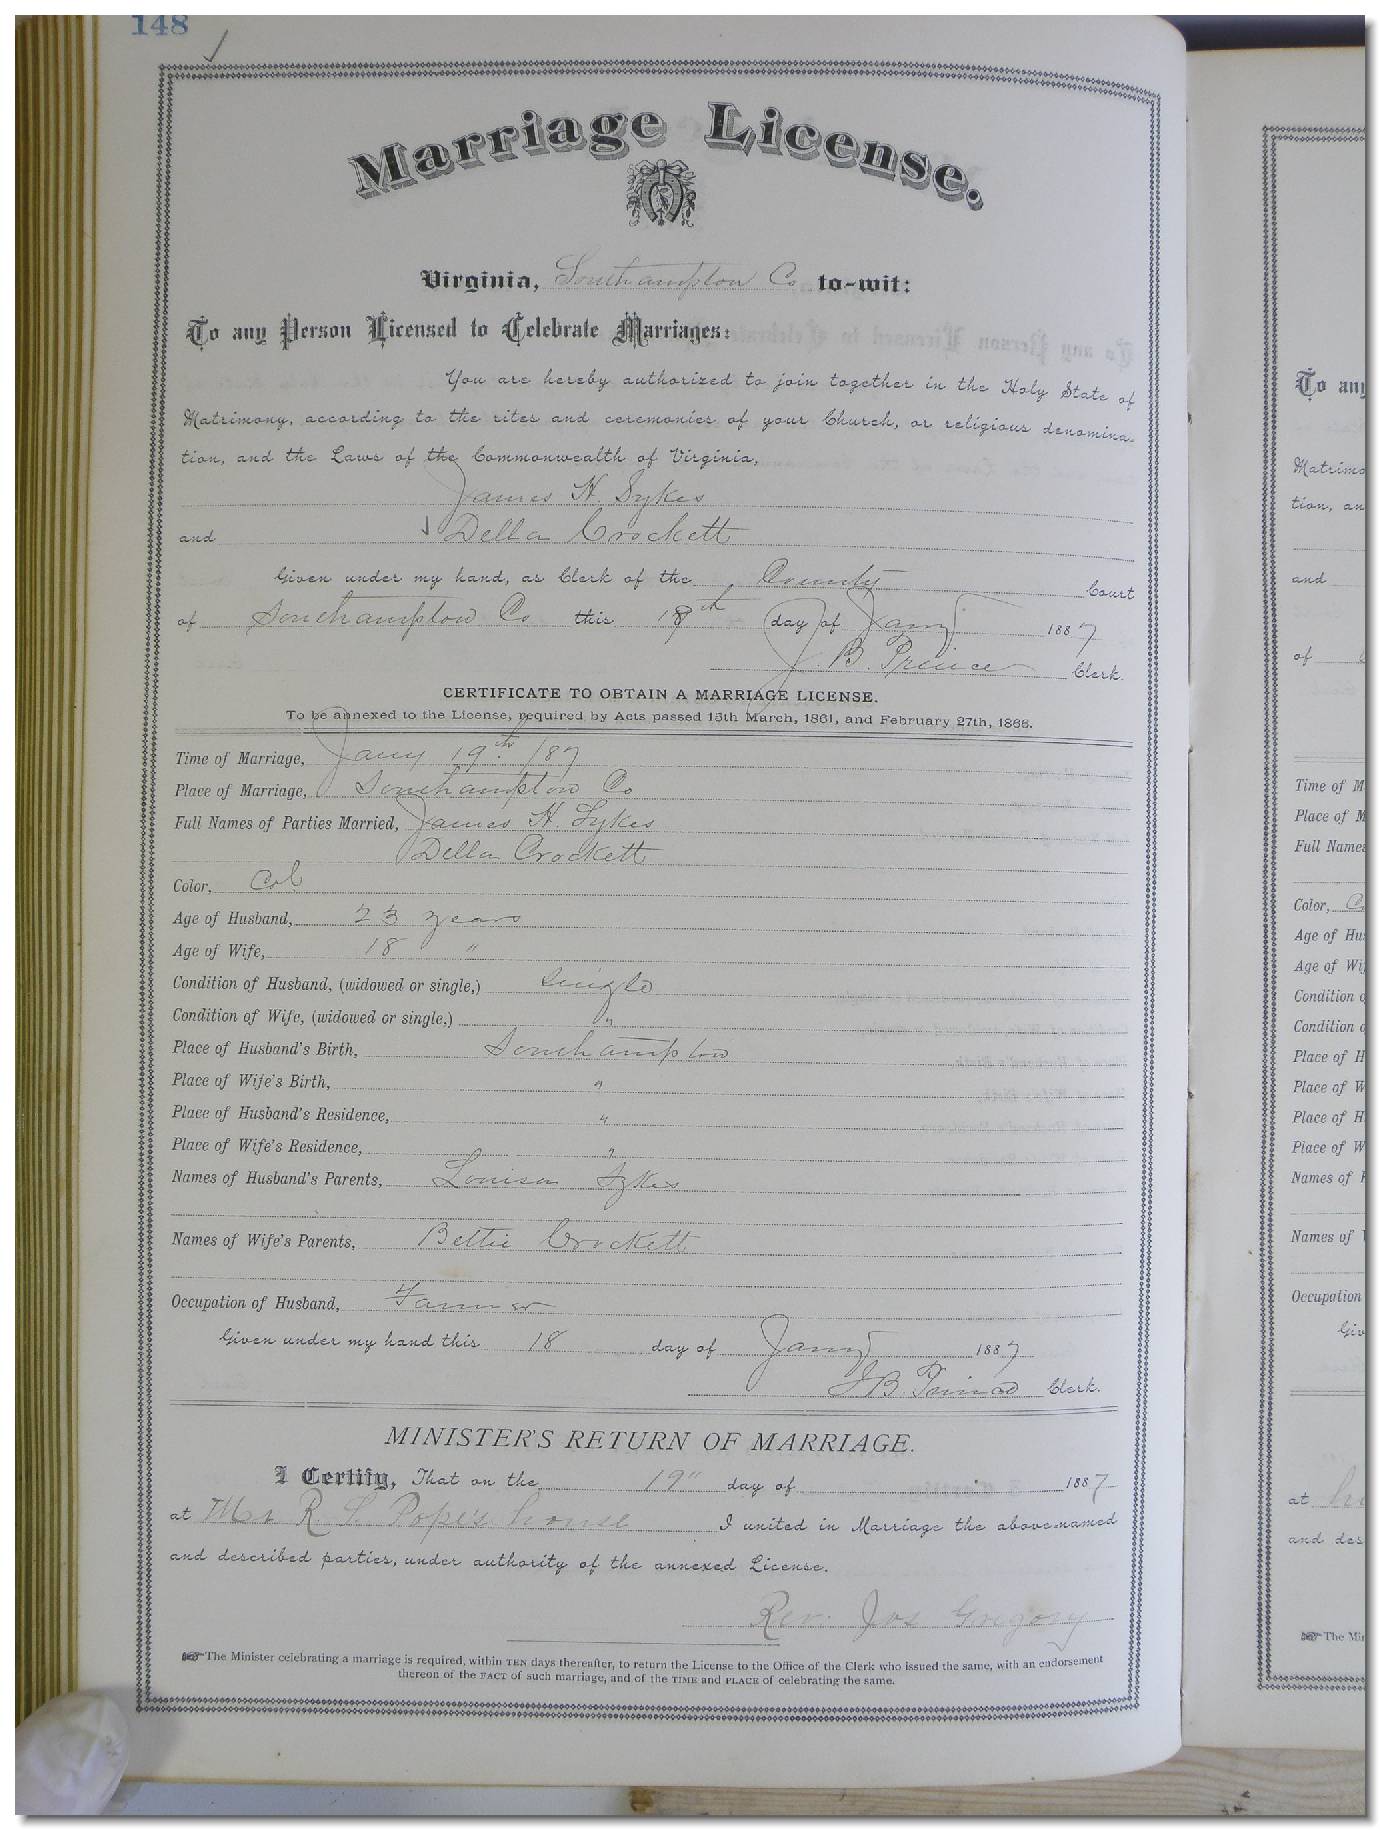 148
Marriage License.
Virginia, Southampton Co to-wit:
To any Person Licensed to Celebrate Marriages:
You are hereby authorized to join together in the Holy State of
Matrimony, according to the rites and ceremonies of your Church, or religious denomina-
tion, and the Laws of the Commonwealth of Virginia,
James H. Sykes
and Della Crockett
Given under my hand, as Clerk of the County Court
of Southampton Co this 18th day of Jany 1887
J. B. Prince Clerk.
CERTIFICATE TO OBTAIN A MARRIAGE LICENSE.
To be annexed to the License, required by Acts passed 15th March, 1861, and February 27th, 1866.
Time of Marriage, Jany 19th /87
Place of Marriage, Southampton Co
Full Names of Parties Married, James H. Sykes
Della Crockett
Color, Col
Age of Husband, 23 years
Age of Wife, 18 "
Condition of Husband, (widowed or single,) Single
Condition of Wife, (widowed or single,) "
Place of Husband's Birth, Southampton
Place of Wife's Birth, "
Place of Husband's Residence, "
Place of Wife's Residence, "
Names of Husband's Parents, Louisa Sykes
Names of Wife's Parents, Bettie Crockett
Occupation of Husband, Farmer
Given under my hand this 18 day of Jany 1887
J B. Prince Clerk.
MINISTER'S RETURN OF MARRIAGE.
I Certify, That on the 19" day of 1887
at Mr R. S. Pope's house I united in Marriage the above-named
and described parties, under authority of the annexed License.
Rev. Jos Gregory
The Minister celebrating a marriage is required, within TEN days thereafter, to return the License to the Office of the Clerk who issued the same, with an endorsement
thereon of the FACT of such marriage, and of the TIME and PLACE of celebrating the same.
To any
Matrimo
tion, an
and
of
Time of M
Place of M
Full Name
Color, C
Age of Hu
Age of Wi
Condition o
Condition o
Place of H
Place of W
Place of H
Place of W
Names of H
Names of
Occupation
Giv
at
and des
The Mi